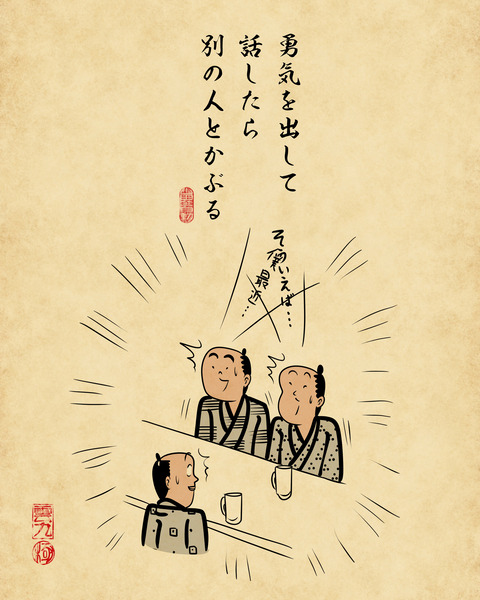 勇気を出して
話したら
別の人とかぶる
そ
いえば…
最近…